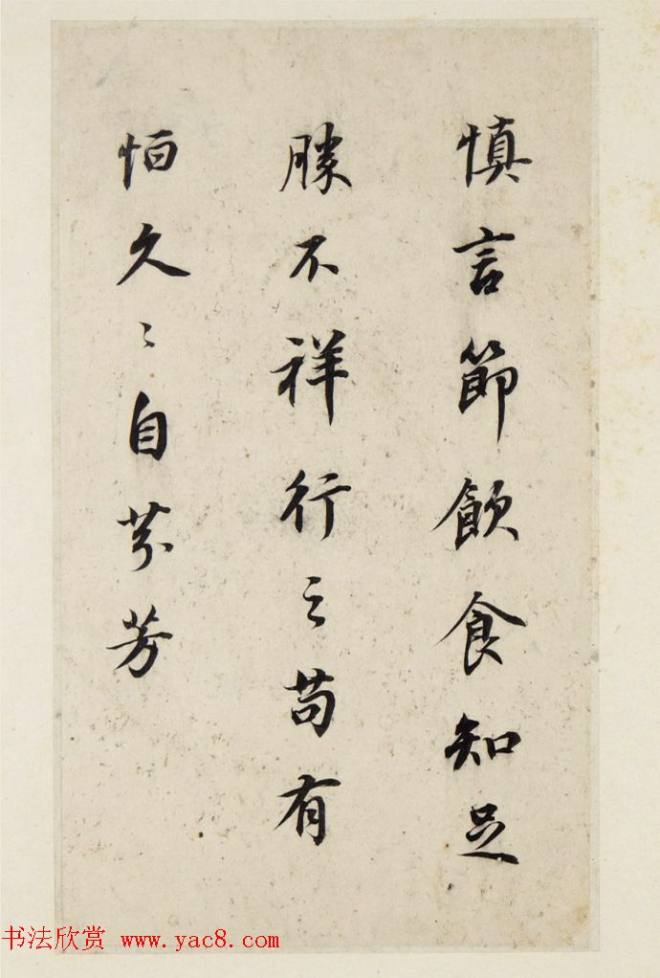 慎言節飲食知足
勝不祥行之苟有
恒久〻自芬芳
书法欣赏 www.yac8.com